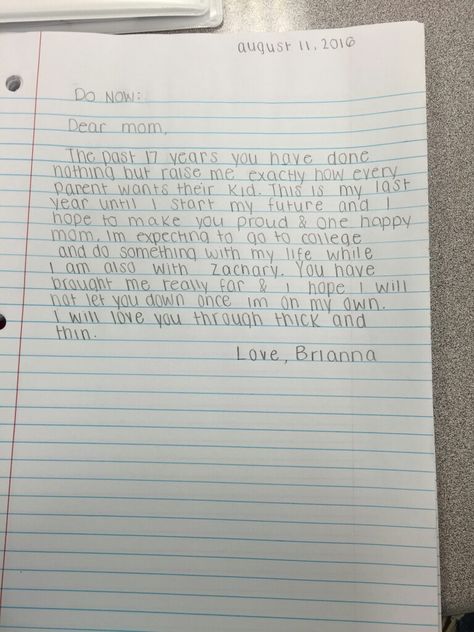 august 11, 2016
DO NOW:
Dear mom,
The past 17 years you have done
nothing but raise me exactly how every
parent wants their kid. This is my last
year until I start my future and I
hope to make you proud & one happy
mom. Im expecting to go to college
and do something with my life while
I am also with Zachary. You have
brought me really far & I hope I will
not let you down once im on my own.
I will love you through thick and
thin.
Love, Brianna